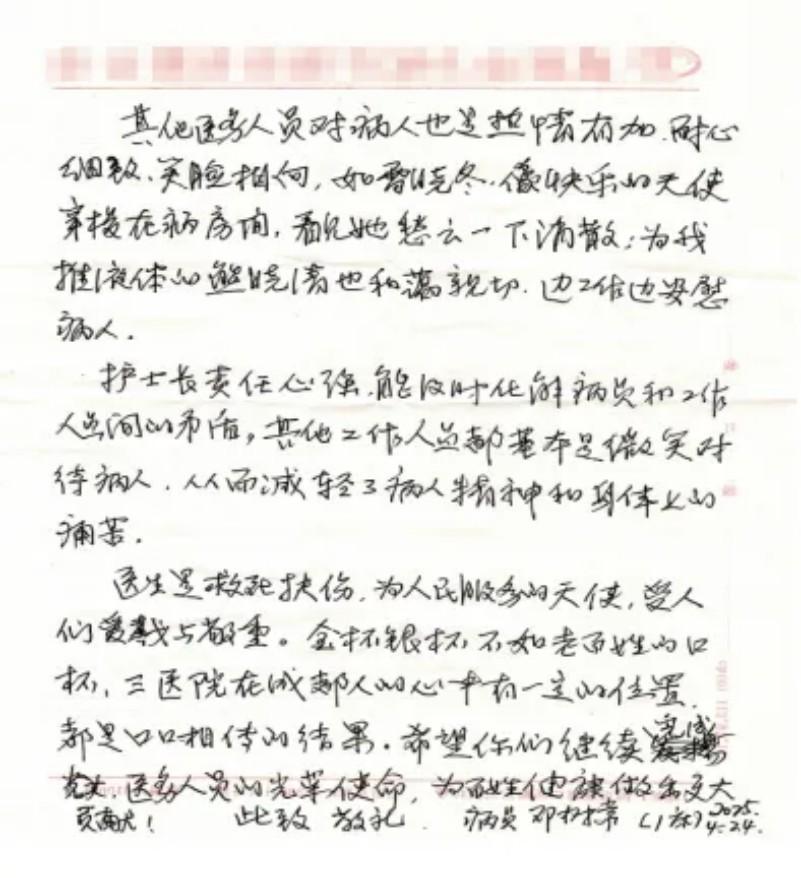 其他医务人员对病人也是热情有加.耐心
细致、笑脸相向，如雷晓冬.像快乐的天使
穿梭在病房间，看见她愁云一下消散；为我
推液体的熊晓清也和蔼亲切.边工作边安慰
病人.
护士长责任心强.能及时化解病员和工作
人员间的矛盾，其他工作人员都基本是微笑对
待病人.从而减轻了病人精神和身体上的
痛苦.
医生是救死扶伤.为人民服务的天使，受人
们爱戴与敬重。金杯银杯不如老百姓的口
杯，三医院在成都人的心中有一定的位置.
都是口口相传的结果。希望你们继续完成
医务人员的光荣使命，为百姓健康做出更大
贡献！ 此致 敬礼. 病员 邓 (1床) 2025.
4.24.